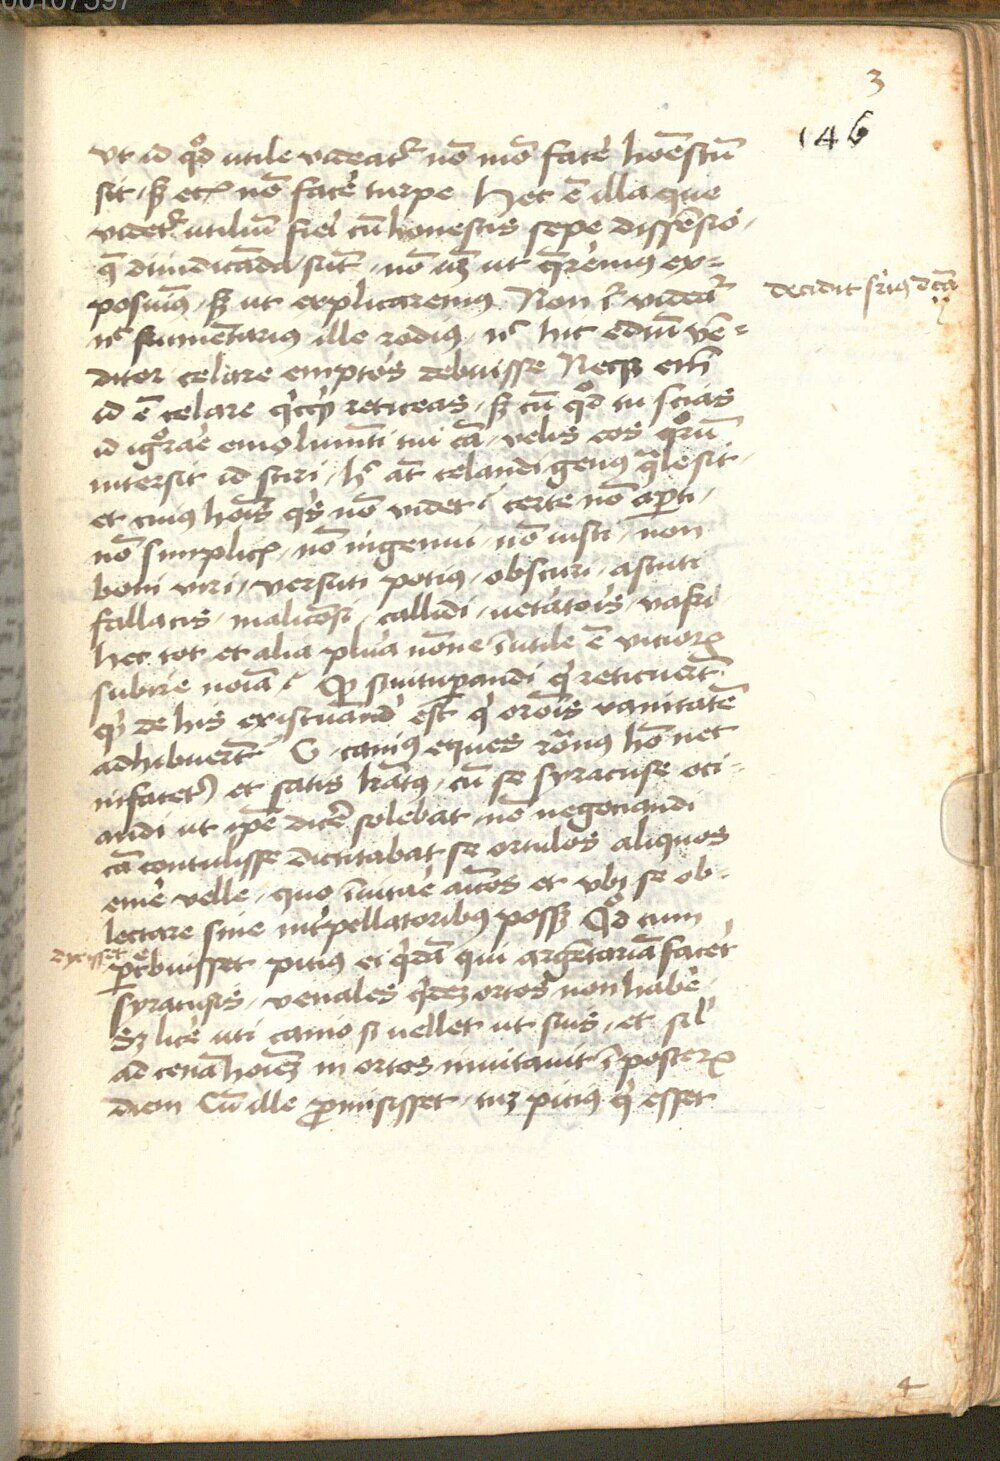 00107397
3
146
vt id qd utile videatr nō mō facē hōestū
sit, sz etz nō facē turpe Hec ē illa que
videtr utiliū fieī cū honestis sepe dissēsio,
q̄ diiudicāda sūt, nō .n. ut q̄reremus ex=
posuimus, sz ut explicaremus Non igr videtr
decidit frius dcā
nc frumētarius ille rodius, nc hic ediū vē=
ditor celare emptōs debuisse Necz enī
id ē celare qcqd reticeas, sz cū qd tu scias
id igrāe emolumēti tui cā, velis eos qrū
intersit id sciri, hc āt celandi genus q̄le sit,
et cuius hoīs qs nō videt? certe nō apti,
nō simplicz, nō ingenui, nō iusti, non
boni viri, versuti potius, obscuri, astuti
fallacis, maliciōsi, callidi, vetatois, vafri
hec tot et alia plua nōne īutile ē vicioꝝ
subire noīa? Qd si vitupandi q reticuert
qd de his existimand est q orōis vanitatē
adhibuert C. canius eques rōnus hō nec
infacetus et satis lrātus, cū se syracuse oci=
andi ut ipē dicē solebat, nō negociandi
cā contulisse dictitabat se ortulos aliquos
emē velle, quo īuitāe aīcos et ubi se ob=
lectare sine intpellatoribus possz Qd cum
pcrebuisset pitius ei qdā qui argētariā facet
syracusis, venales qdez ortos non habē,
sz licē uti canio si vellet ut suis, et sīl
ad cenā hoīez in ortos inuitauit ī posterꝝ
diem Cū ille pmisisset, tuz pitius q esset
4